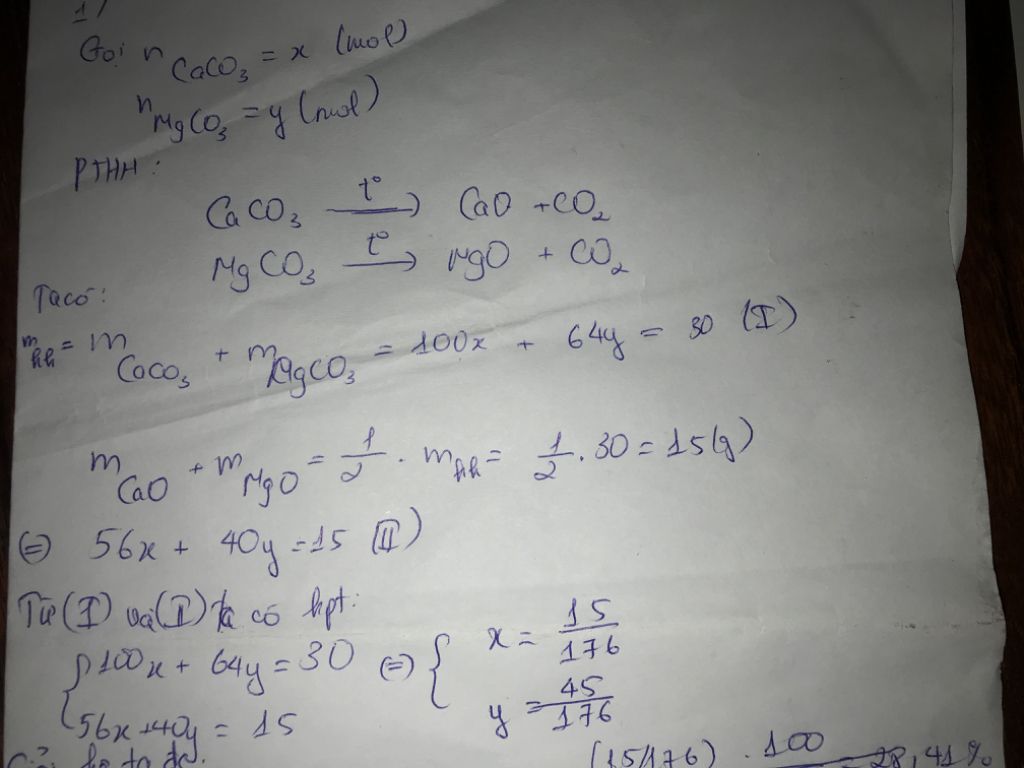 1/
Gọi nCaCO₃ = x (mol)
nMgCO₃ = y (mol)
PTHH:
CaCO₃ —t°→ CaO + CO₂
MgCO₃ —t°→ MgO + CO₂
Ta có:
mhh = mCaCO₃ + mMgCO₃ = 100x + 64y = 30 (I)
mCaO + mMgO = 1/2 . mhh = 1/2 . 30 = 15(g)
(=) 56x + 40y = 15 (II)
Từ (I) và (I) ta có hpt:
{ 100x + 64y = 30 (=) { x = 15/176
56x + 40y = 15 y = 45/176
(15/176) . 100 = 28,41%